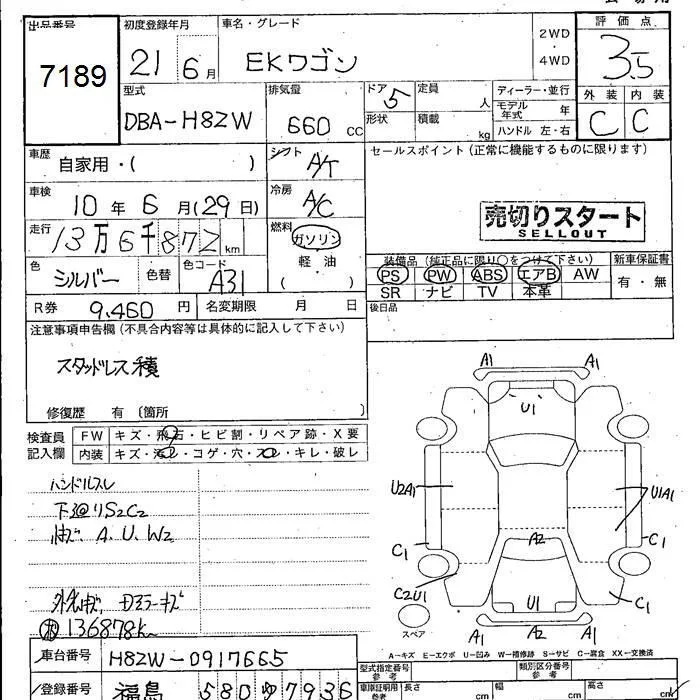 出品番号
7189
初度登録年月
21 6 月
車名・グレード
EKワゴン
2WD
・
4WD
評価点
3.5
外装 内装
C C
型式
DBA-H82W
排気量
660 CC
ドア
5
形状
定員
人
積載
kg
ディーラー・並行
モデル年式 年
ハンドル 左・右
車歴
自家用・( )
シフト
A/T
セールスポイント(正常に機能するものに限ります)
車検
10 年 6 月(29日)
冷房
A/C
売切りスタート
SELLOUT
走行
13万6千872 km
燃料
ガソリン
軽 油
( )
装備品(純正品に限り○をつけて下さい)
新車保証書
PS PW ABS エアB AW
SR ナビ TV 本革
有・無
色
シルバー
色替
色コード
A31
R券 9,460 円
名変期限 月 日
後日品
注意事項申告欄(不具合内容等は具体的に記入して下さい)
スタッドレス積
修復歴 有〔箇所 〕
検査員
記入欄
FW キズ・飛石・ヒビ割・リペア跡・X要
内装 キズ・汚レ・コゲ・穴・スレ・キレ・破レ
ハンドルスレ
下廻りS2C2
A.U.W2
136878k
A1 A1
U1
U2A1
U1A1
A2
C1 C1
C2U1
C1
U1
A1 A2 A1
スペア
A-キズ E-エクボ U-凹み W-補修跡 S-サビ C-腐食 XX-交換済
車台番号
H82W-0917665
登録番号
福島 580 ゆ 7936
型式指定番号
参考
類別区分番号
参考
車庫証明用
参考
長さ cm
幅 cm
高さ cm